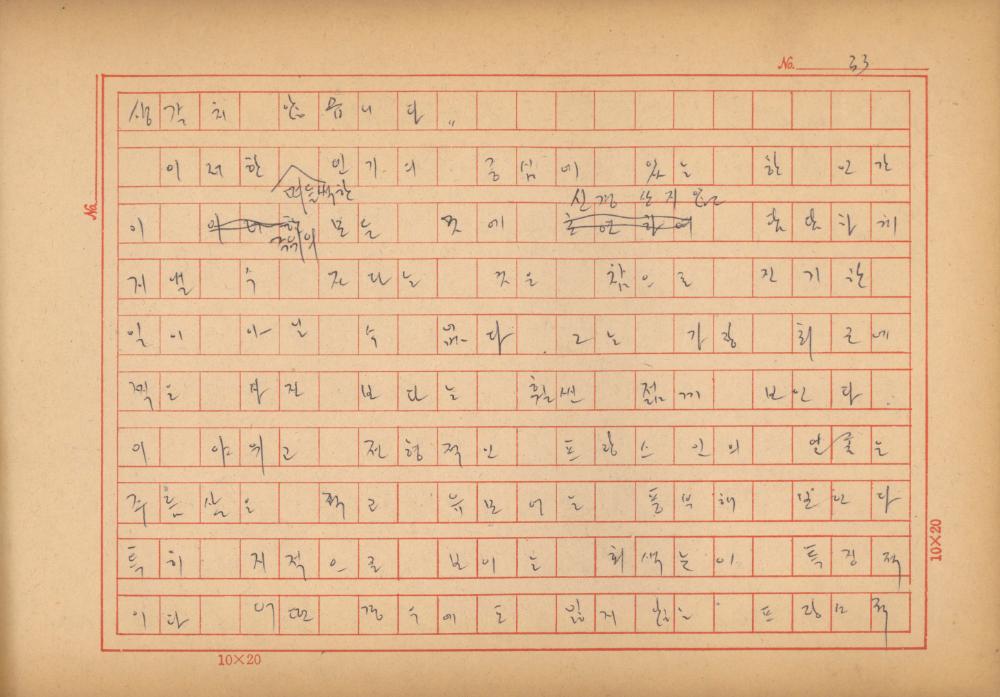 No. 33
생각치 않습니다"
이러한 인기의 중심에 있는 한 인간
떠들썩한
신경 쓰지 않고
이 모든 것에 초연하여
주위의
지낼 수 있다는 것은 참으로 진기한
일이 아닐 수 없다. 그는 가장 최근에
찍은 사진 보다는 훨씬 젊게 보인다.
이 야위고 전형적인 프랑스인의 얼굴는
주름살은 적고 유모어는 풍부해 보인다
특히 지적으로 보이는 회색눈이 특징적
이다 어떤 경우에도 잃지 않는
No.
10×20
10×20